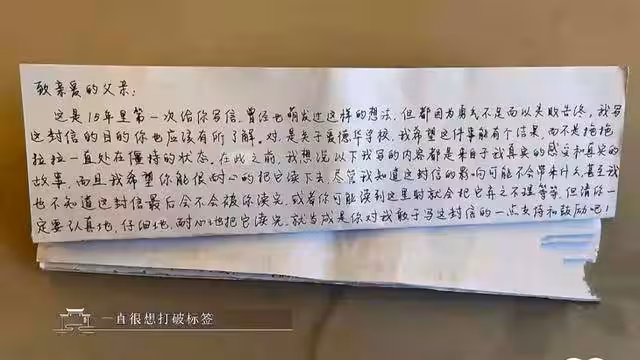 致亲爱的父亲：
这是15年里第一次给你写信，曾经也萌发过这样的想法，但都因为勇气不足而以失败告终。我写
这封信的目的你也应该有所了解。对，是关于爱德华学校，我希望这件事能有个结果，而不是拖拖
拉拉一直处在僵持的状态。在此之前，我想说以下我写的内容都是来自于我真实的感受和真实的
故事，而且我希望你能很耐心的把它读下去，尽管我知道这封信的影响可能不会带来什么，甚至我
也不知道这封信最后会不会被你读完，或者你可能读到这里时就会把它弃之不理等等，但请你一
定要认真地，仔细地，耐心地把它读完，就当成是你对我敢于写这封信的一点支持和鼓励吧！
一直很想打破标签